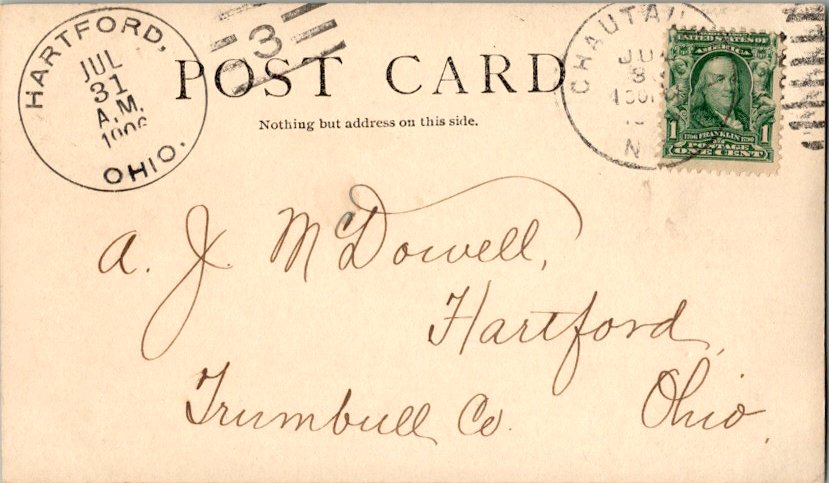 HARTFORD,
JUL
31
A.M.
1906
OHIO.
3
POST CARD
Nothing but address on this side.
N
UNITED STATES OF
AMERICA
1 1706 FRANKLIN 1790 1
POSTAGE
ONE CENT
A. J. McDowell,
Hartford,
Trumbull Co. Ohio.